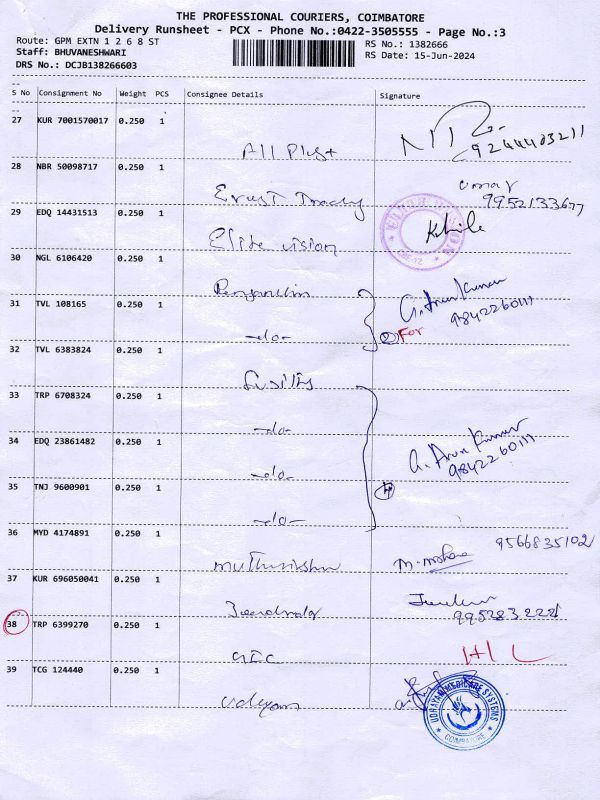 THE PROFESSIONAL COURIERS, COIMBATORE
Delivery Runsheet - PCX - Phone No.:0422-3505555 - Page No.:3
Route: GPM EXTN 1 2 6 8 ST
Staff: BHUVANESHWARI
DRS No.: DCJB138266603
RS No.: 1382666
RS Date: 15-Jun-2024
S No Consignment No Weight PCS Consignee Details Signature
27 KUR 7001570017 0.250 1
All Plus+ 9244403211
28 NBR 50098717 0.250 1
Ernst 9952133677
29 EDQ 14431513 0.250 1
Elite vision
30 NGL 6106420 0.250 1
G. Arun Kumar
31 TVL 108165 0.250 1
9842260111
-do- 2 For
32 TVL 6383824 0.250 1
33 TRP 6708324 0.250 1
-do-
34 EDQ 23861482 0.250 1
G. Arun Kumar
-do- 9842260111
35 TNJ 9600901 0.250 1
4
-do-
36 MYD 4174891 0.250 1
9566835102
37 KUR 696050041 0.250 1
38 TRP 6399270 0.250 1
39 TCG 124440 0.250 1
UDHAYAM MEDICARE SYSTEMS
COIMBATORE